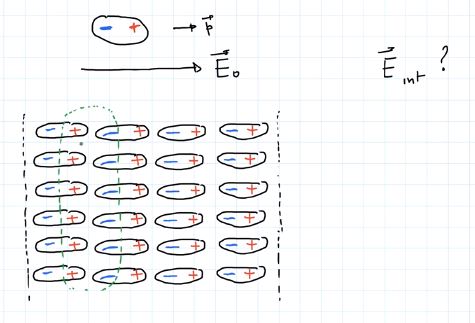 - + → p⃗
E⃗₀ E⃗ᵢₙₜ ?
- + - + - + - +
- + - + - + - +
- + - + - + - +
- + - + - + - +
- + - + - + - +
- + - + - + - +